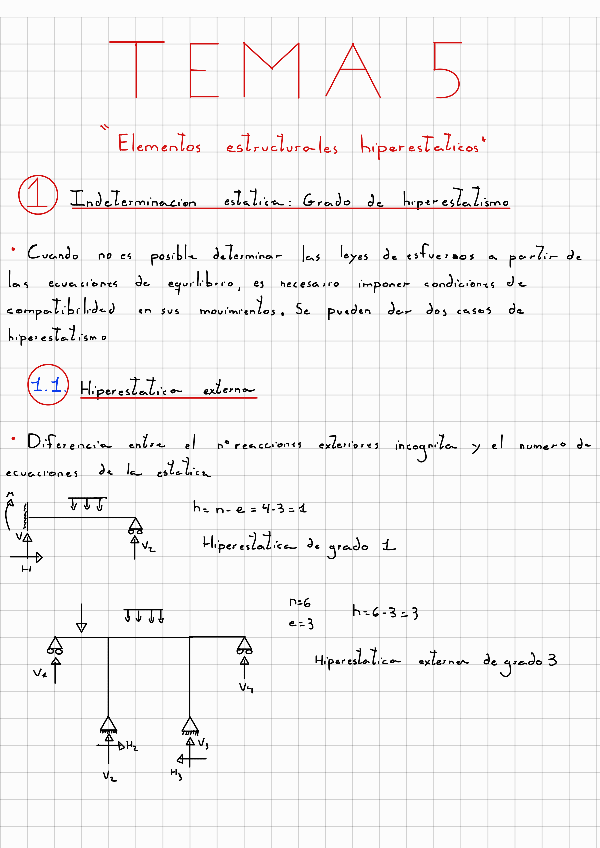 TEMA 5
"Elementos estructurales hiperestaticos"
1 Indeterminacion estatica: Grado de hiperestatismo
• Cuando no es posible determinar las leyes de esfuerzos a partir de
las ecuaciones de equilibro, es necesario imponer condiciones de
compatibilidad en sus movimientos. Se pueden dar dos casos de
hiperestatismo
1.1. Hiperestatica externa
• Diferencia entre el nº reacciones exteriores incognita y el numero de
ecuaciones de la estatica
M
h = n - e = 4 - 3 = 1
V
V2
Hiperestatica de grado 1
H
n=6
e=3
h = 6 - 3 = 3
Hiperestatica externa de grado 3
V1
V4
H2
V3
V2
H3